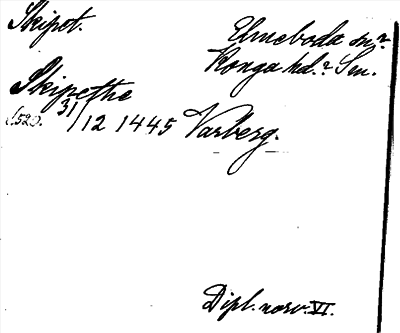 Skipet.
Elmeboda sn?
Konga hd.? Sm.
Skipethe
(s. 520. 31/12 1445 Varberg.
Dipl. norv. VI.